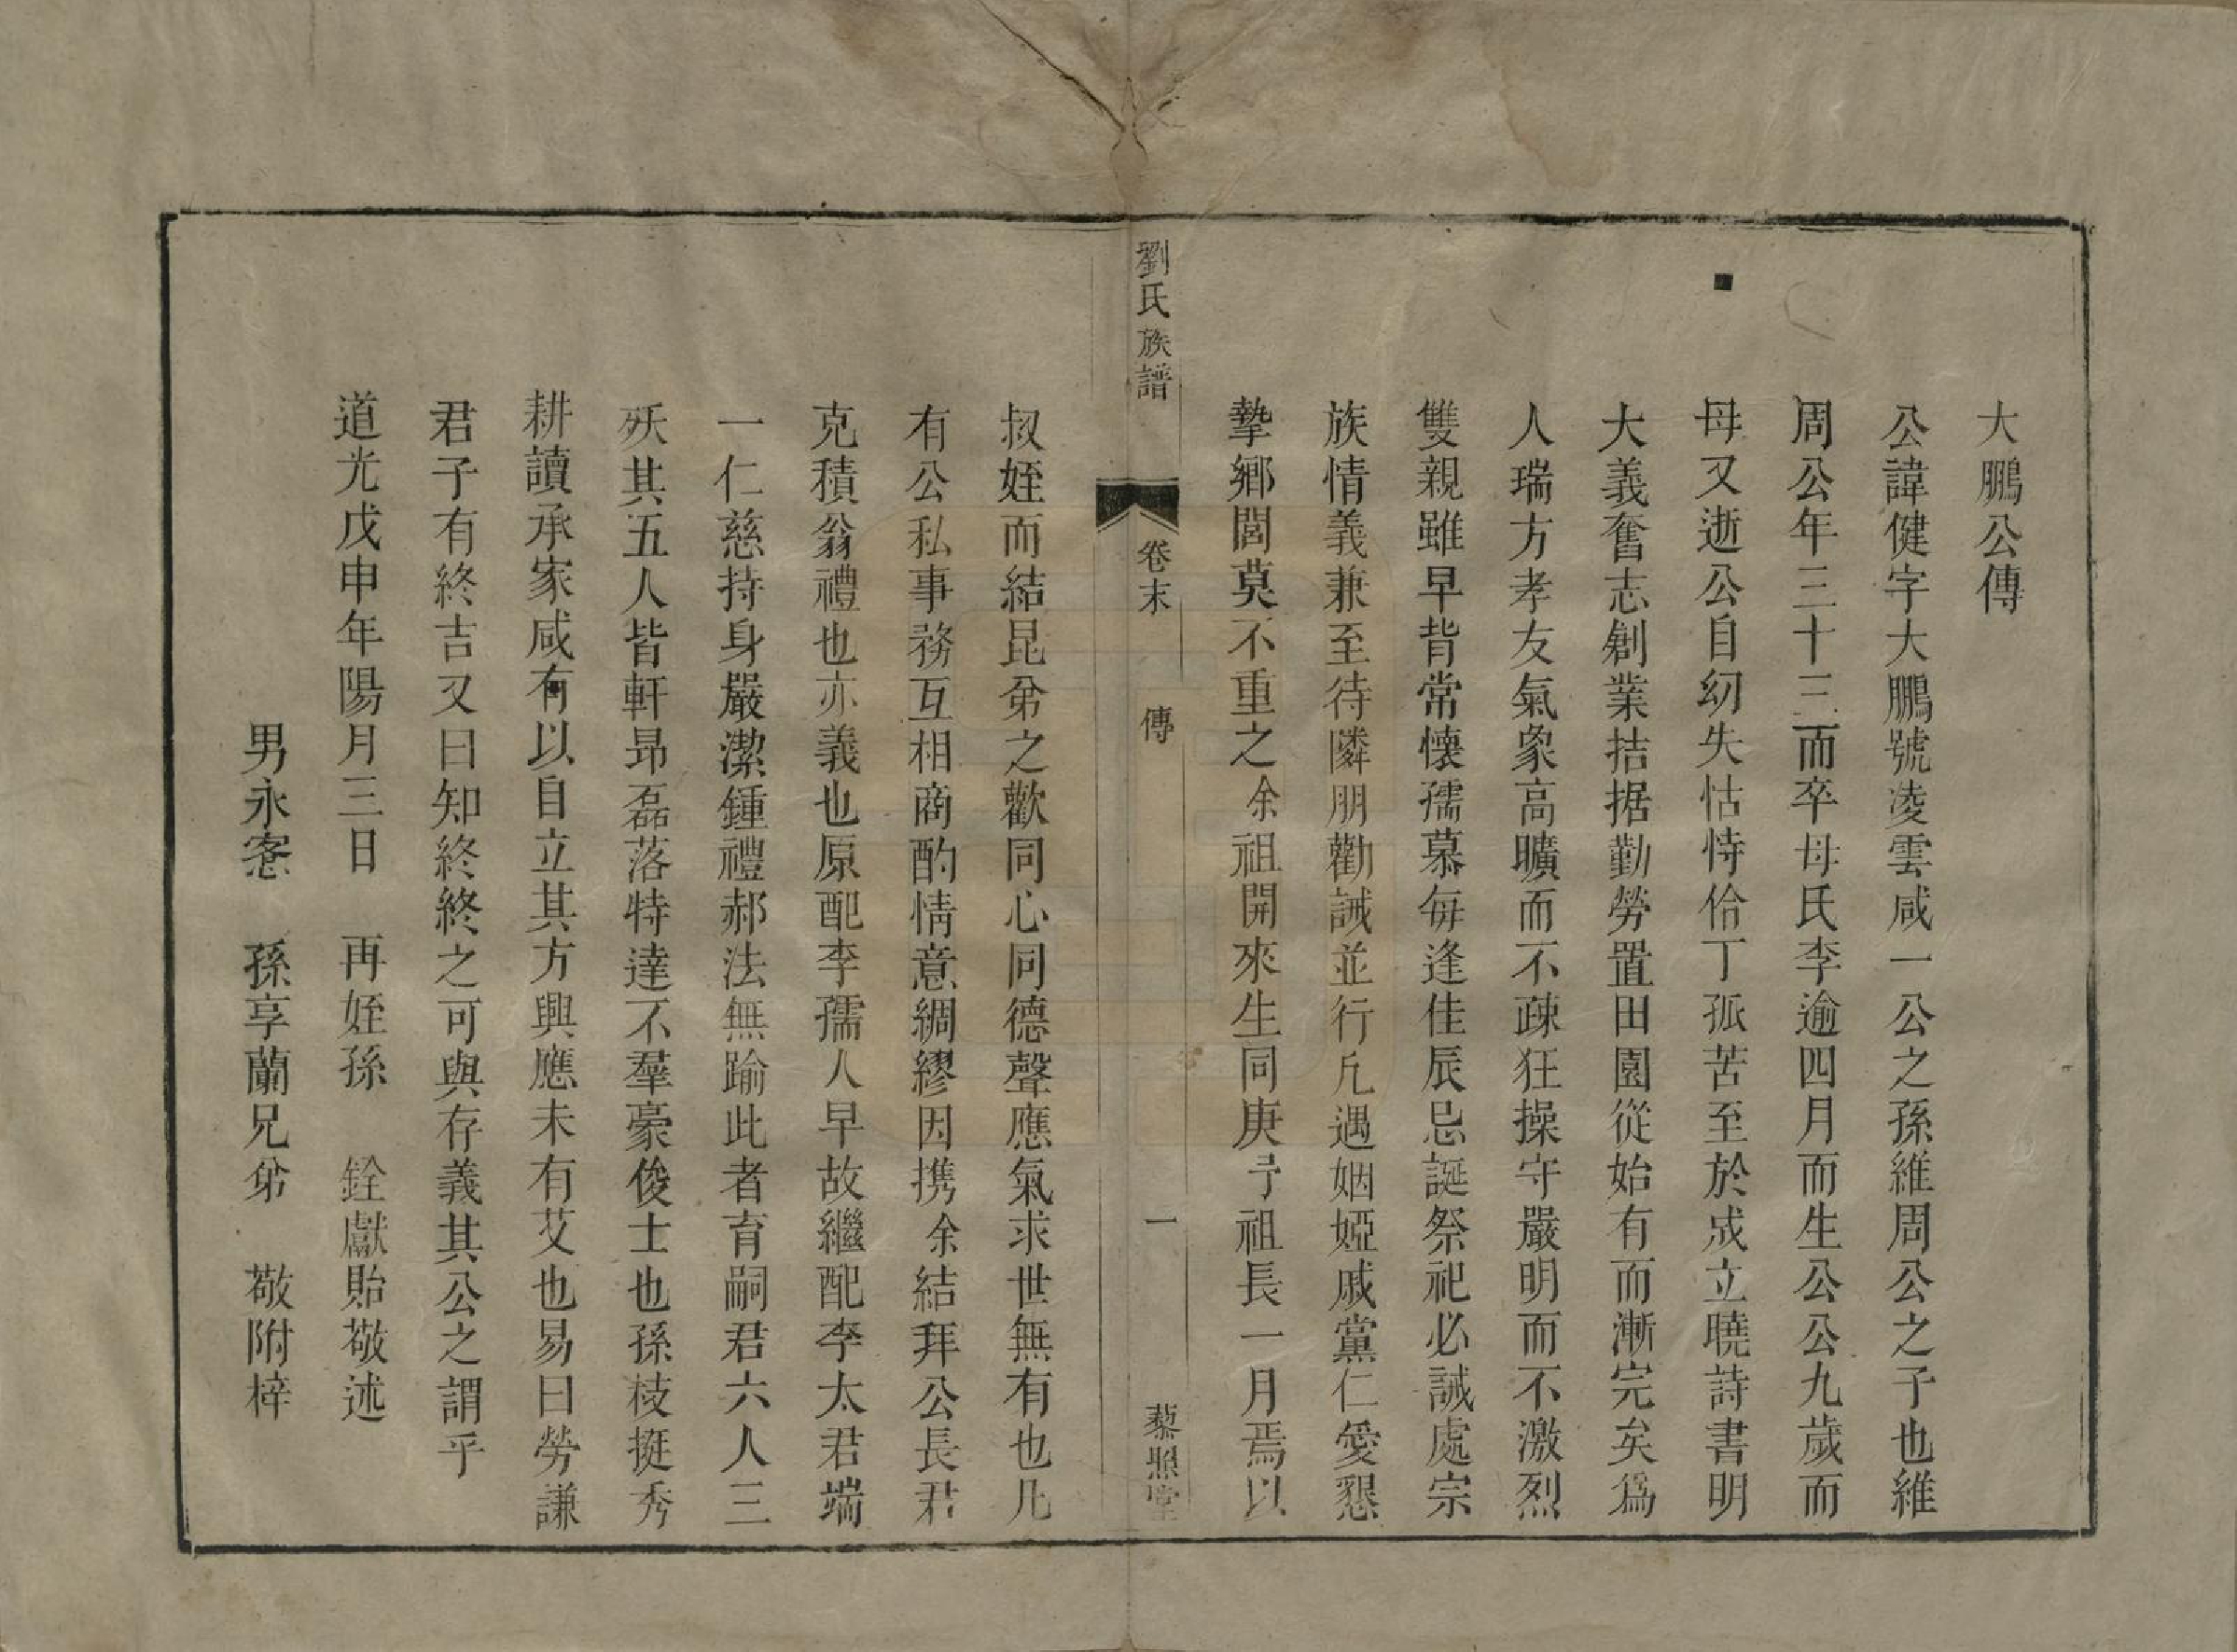 大鵬公傳
公諱健字大鵬號凌雲咸一公之孫維周公之子也維
周公年三十三而卒母氏李逾四月而生公公九歲而
母又逝公自幼失怙恃伶丁孤苦至於成立曉詩書明
大義奮志創業拮据勤勞置田園從始有而漸完矣爲
人瑞方孝友氣象高曠而不疎狂操守嚴明而不激烈
雙親雖早背常懷孺慕每逢佳辰忌誕祭祀必誠處宗
族情義兼至待隣朋勸誡並行凡遇姻婭戚黨仁愛懇
摯鄉閭莫不重之余祖開來生同庚予祖長一月焉以
劉氏族譜
卷末
傳
一
藜照堂
叔姪而結昆弟之歡同心同德聲應氣求世無有也凡
有公私事務互相商酌情意綢繆因携余結拜公長君
克積翁禮也亦義也原配李孺人早故繼配李太君端
一仁慈持身嚴潔鍾禮郝法無踰此者育嗣君六人三
殀其五人皆軒昂磊落特達不羣豪俊士也孫枝挺秀
耕讀承家咸有以自立其方興應未有艾也易曰勞謙
君子有終吉又曰知終終之可與存義其公之謂乎
道光戊申年陽月三日 再姪孫 銓獻貽敬述
男永窓 孫享蘭兄弟 敬附梓